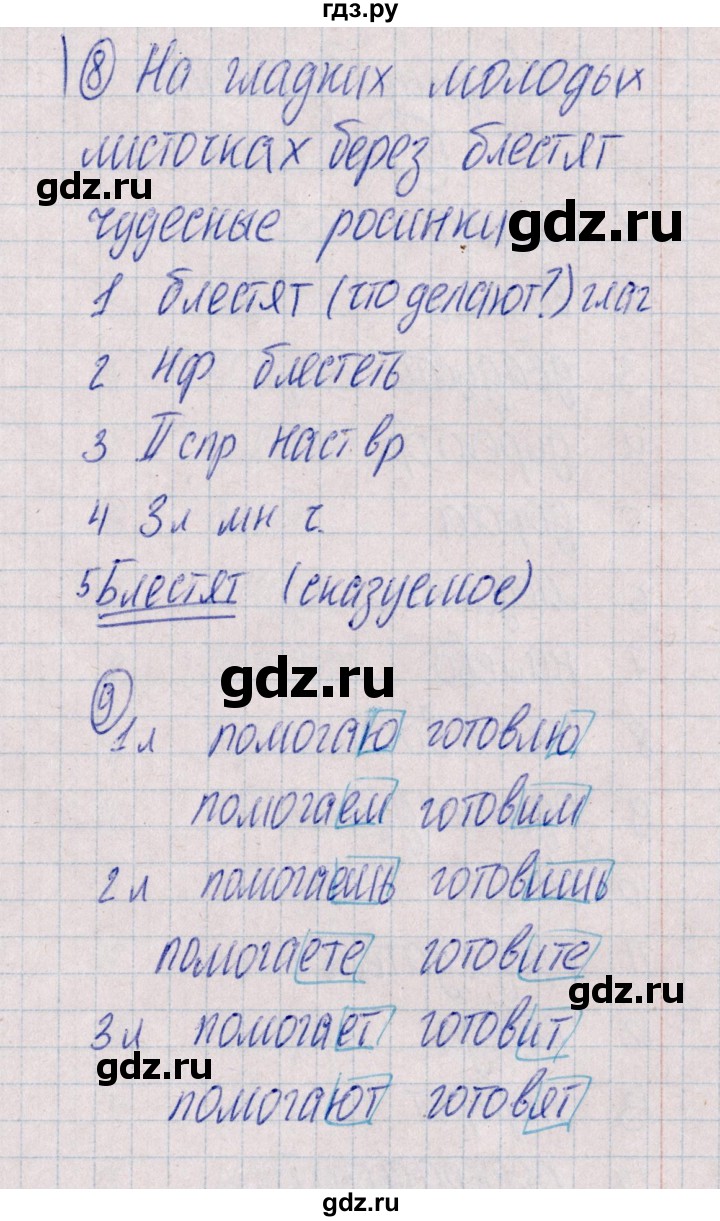 гдз.ру
8 На гладких молодых
листочках берез блестят
gdz.ru
чудесные росинки
gdz.ru
1 блестят (что делают?) глаг
2 нф блестеть
3 II спр наст вр
4 3л мн ч.
5 Блестят (сказуемое)
gdz.ru
9
1л помогаю готовлю
помогаем готовим
2л помогаешь готовишь
помогаете готовите
gdz.ru
3л помогает готовит
gdz.ru
помогают готовят
gdz.ru